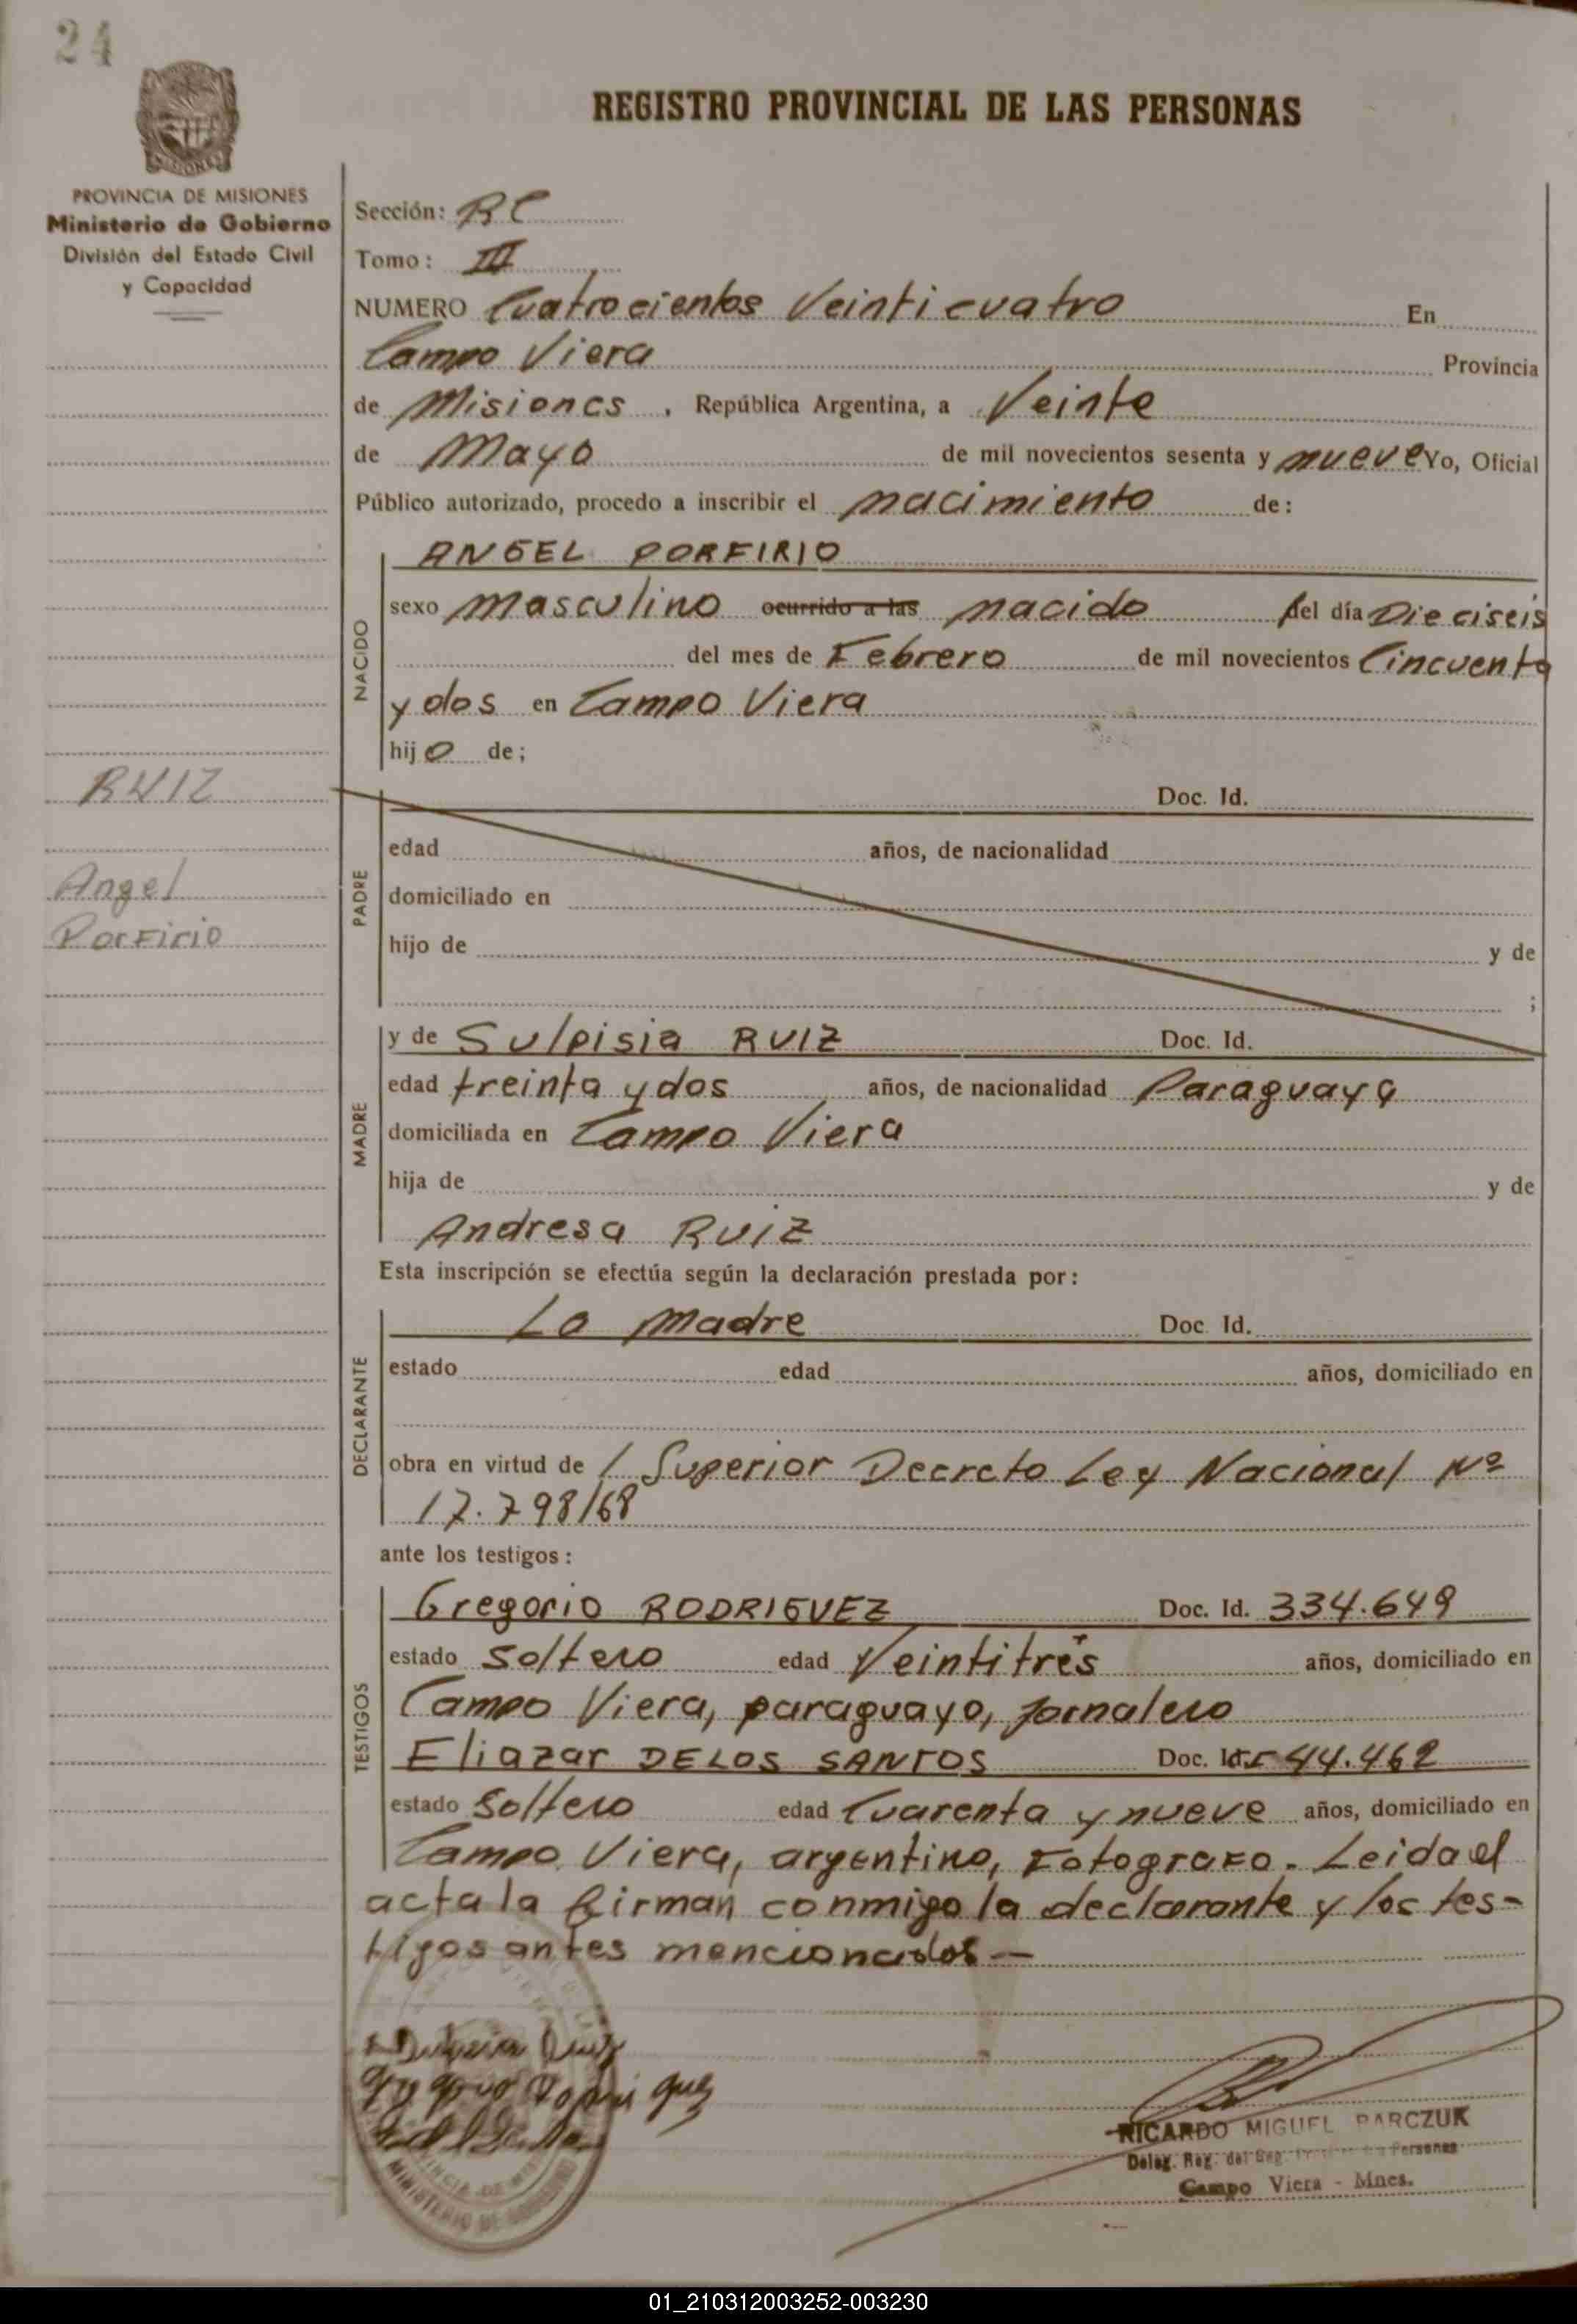 24
PROVINCIA DE MISIONES
Ministerio de Gobierno
División del Estado Civil
y Capacidad
REGISTRO PROVINCIAL DE LAS PERSONAS
Sección: RC
Tomo: III
NUMERO Cuatrocientos Veinticuatro En
Campo Viera Provincia
de Misiones, República Argentina, a Veinte
de Mayo de mil novecientos sesenta y nueve Yo, Oficial
Público autorizado, procedo a inscribir el nacimiento de:
NACIDO
ANGEL PORFIRIO
sexo masculino ocurrido a las nacido del día Dieciseis
del mes de Febrero de mil novecientos Cincuenta
y dos en Campo Viera
hijo de;
RUIZ
Angel
Porfirio
PADRE
Doc. Id.
edad años, de nacionalidad
domiciliado en
hijo de y de
;
MADRE
y de Sulpisia RUIZ Doc. Id.
edad treinta y dos años, de nacionalidad Paraguaya
domiciliada en Campo Viera
hija de y de
Andresa RUIZ
Esta inscripción se efectúa según la declaración prestada por:
DECLARANTE
La madre Doc. Id.
estado edad años, domiciliado en
obra en virtud de / Superior Decreto Ley Nacional Nº
17.798/68
ante los testigos:
TESTIGOS
Gregorio RODRIGUEZ Doc. Id. 334.649
estado soltero edad Veintitrés años, domiciliado en
Campo Viera, paraguayo, jornalero
Eliazar DE LOS SANTOS Doc. Id. 44.462
estado soltero edad Cuarenta y nueve años, domiciliado en
Campo Viera, argentino, Fotografo. Leida el
acta la firman conmigo la declarante y los tes-
tigos antes mencionados —
Ruiz
MINISTERIO DE GOBIERNO
RICARDO MIGUEL PARCZUK
Deleg. Reg. del Reg. Personas
Campo Viera - Mnes.
01_210312003252-003230